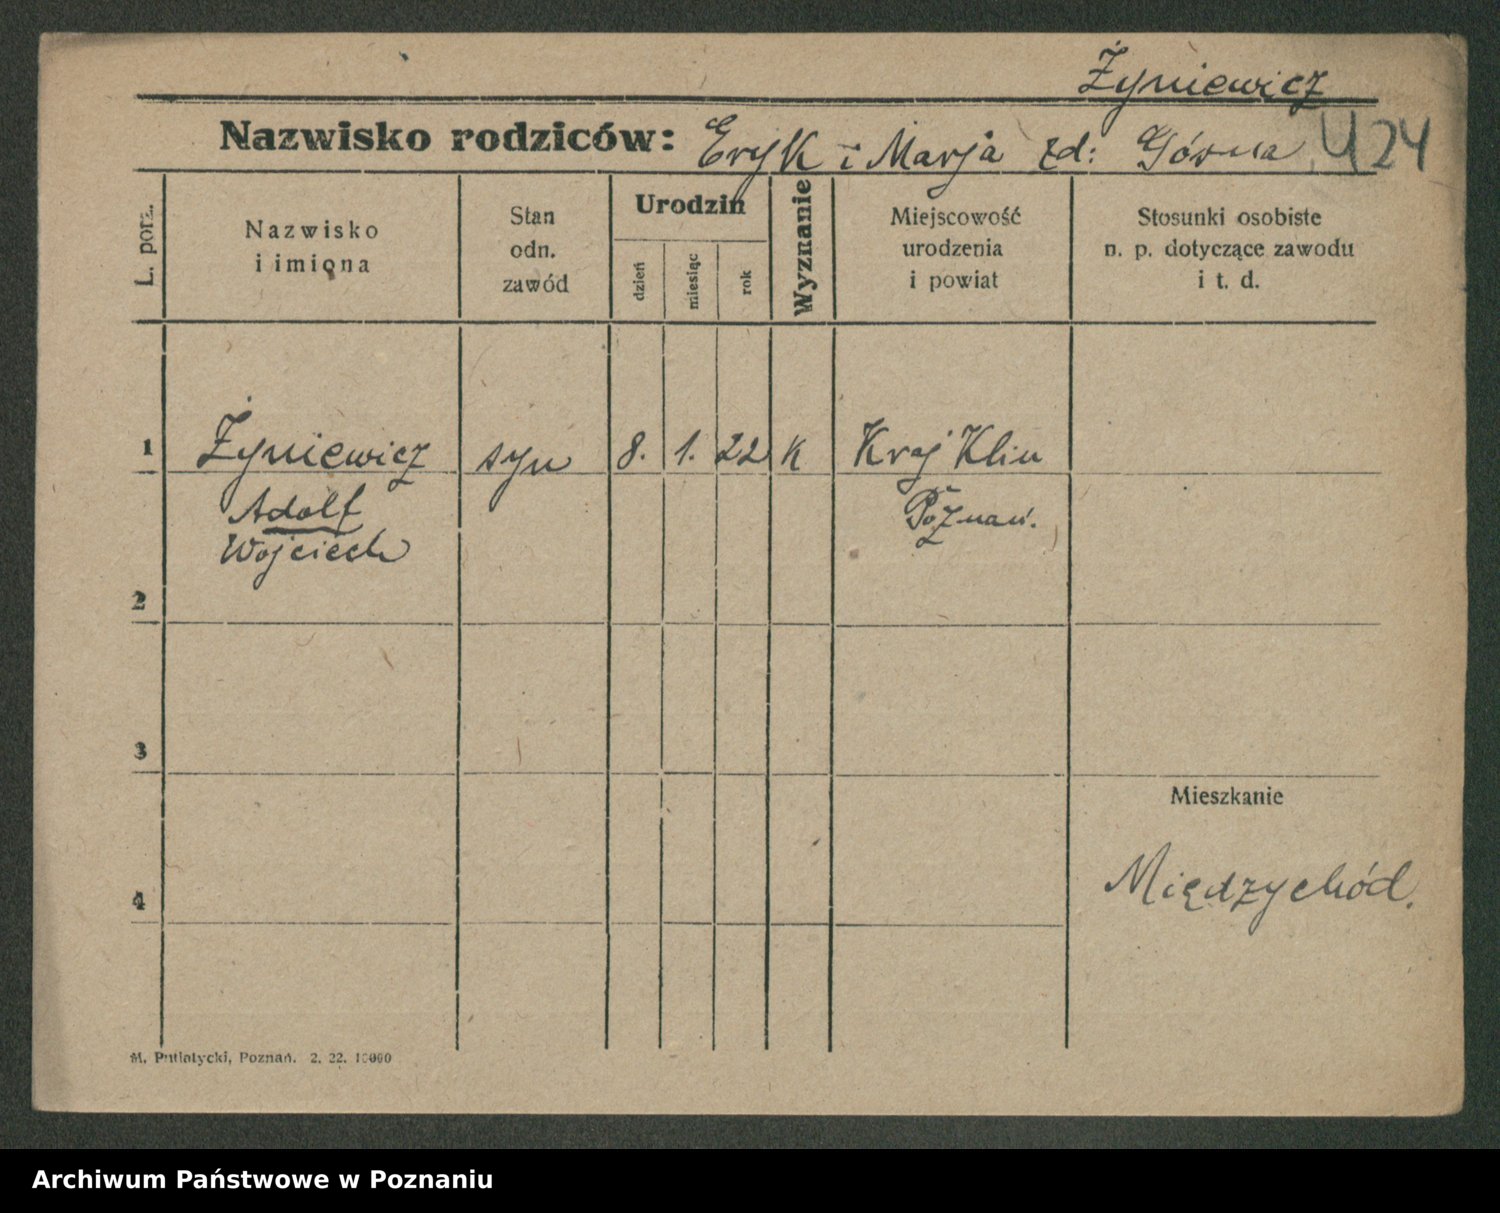 Żyniewicz
Nazwisko rodziców: Eryk i Marja zd: Górna U 24
L. porz.
Nazwisko
i imiona
Stan
odn.
zawód
Urodzin
dzień
miesiąc
rok
Wyznanie
Miejscowość
urodzenia
i powiat
Stosunki osobiste
n. p. dotyczące zawodu
i t. d.
1 Żyniewicz syn 8. 1. 22 K Kraj Klin
Adolf Poznań.
Wojciech
2
3
Mieszkanie
4 Międzychód.
M. Putiatycki, Poznań. 2. 22. 10000
Archiwum Państwowe w Poznaniu